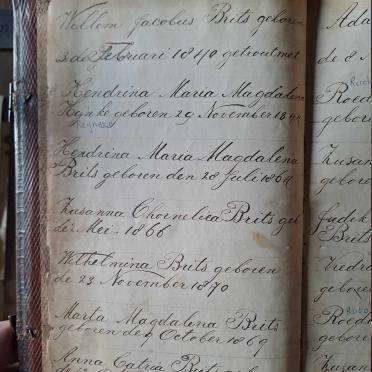 Willem Jacobus Brits geboren
3 de Februari 1840 getrout met
Hendrina Maria Magdalena
geboren 29 November 1844
Reyneke
Hendrina Maria Magdalena
Brits geboren den 28 Juli 1864
Zusanna Chornelica Brits geb
de Mei 1866
Wilhelmina Brits geboren
de 23 November 1870
Marta Magdalena Brits
geboren de October 1869
Anna Catria Brits
Ada
de 8
Roed
gebor
Zusan
gebore
Judik
Brits
gebor
Roed
gebore
Zuzan